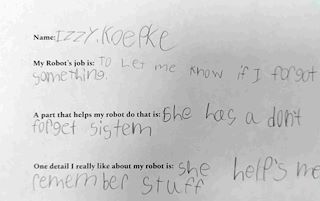 Name: Izzy.Koepke
My Robot's job is: To Let me know if I forgot
something.
A part that helps my robot do that is: She has a don't
forget sistem
One detail I really like about my robot is: she help's me
remember stuff